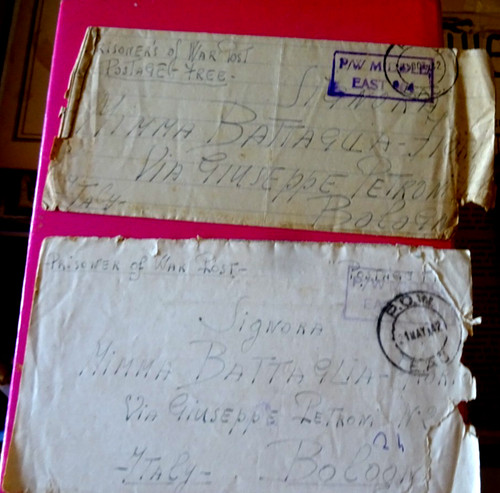 Prisoners of War Post
Postage-Free-
P/W M
EAST
Signora
Mimma Battaglia-
Via Giuseppe Petroni
Bologn
Italy-
Prisoner of War Post-
Postage
EAST
P.O.W.
1 MAY 42
Signora
Mimma Battaglia-
Via Giuseppe Petroni N.
24
-Italy- Bologn